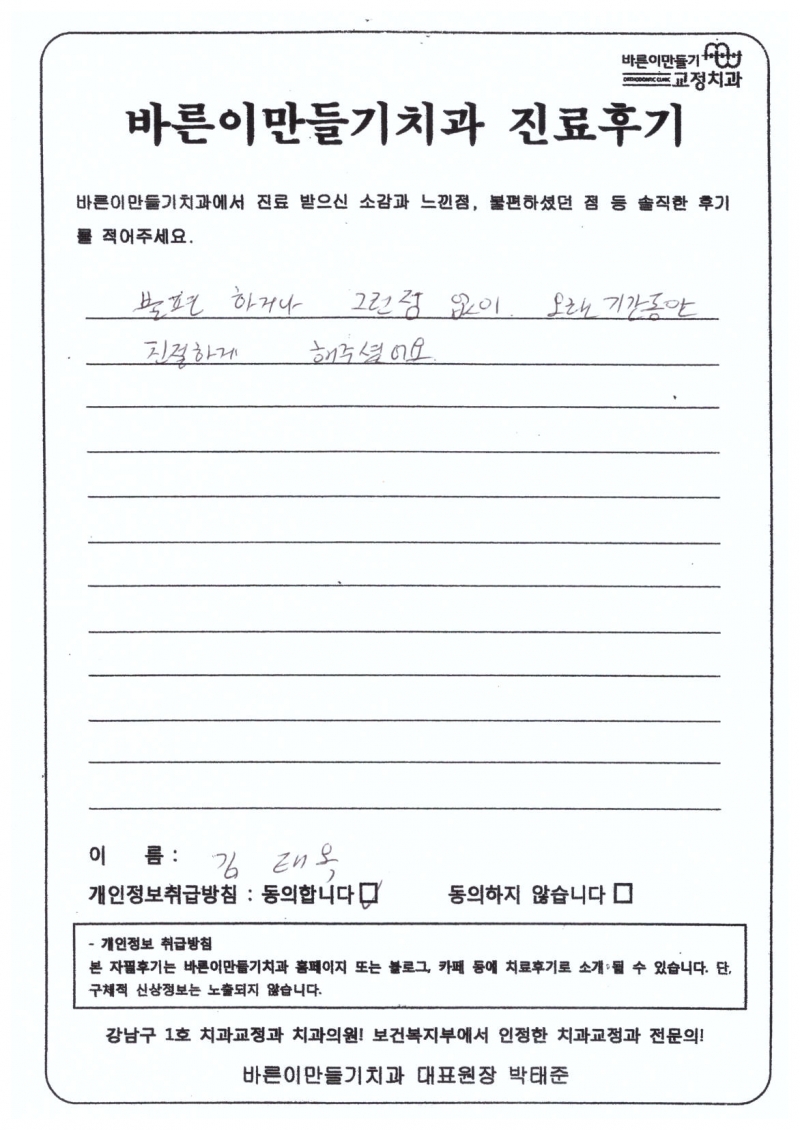 바른이만들기
ORTHODONTIC CLINIC 교정치과
바른이만들기치과 진료후기
바른이만들기치과에서 진료 받으신 소감과 느낀점, 불편하셨던 점 등 솔직한 후기
를 적어주세요.
불편 하거나 그런점 없이. 오랜 기간동안
친절하게 해주셨어요.
이 름 : 김 태옥
개인정보취급방침 : 동의합니다 ☑ 동의하지 않습니다 ☐
- 개인정보 취급방침
본 자필후기는 바른이만들기치과 홈페이지 또는 블로그, 카페 등에 치료후기로 소개 될 수 있습니다. 단,
구체적 신상정보는 노출되지 않습니다.
강남구 1호 치과교정과 치과의원! 보건복지부에서 인정한 치과교정과 전문의!
바른이만들기치과 대표원장 박태준